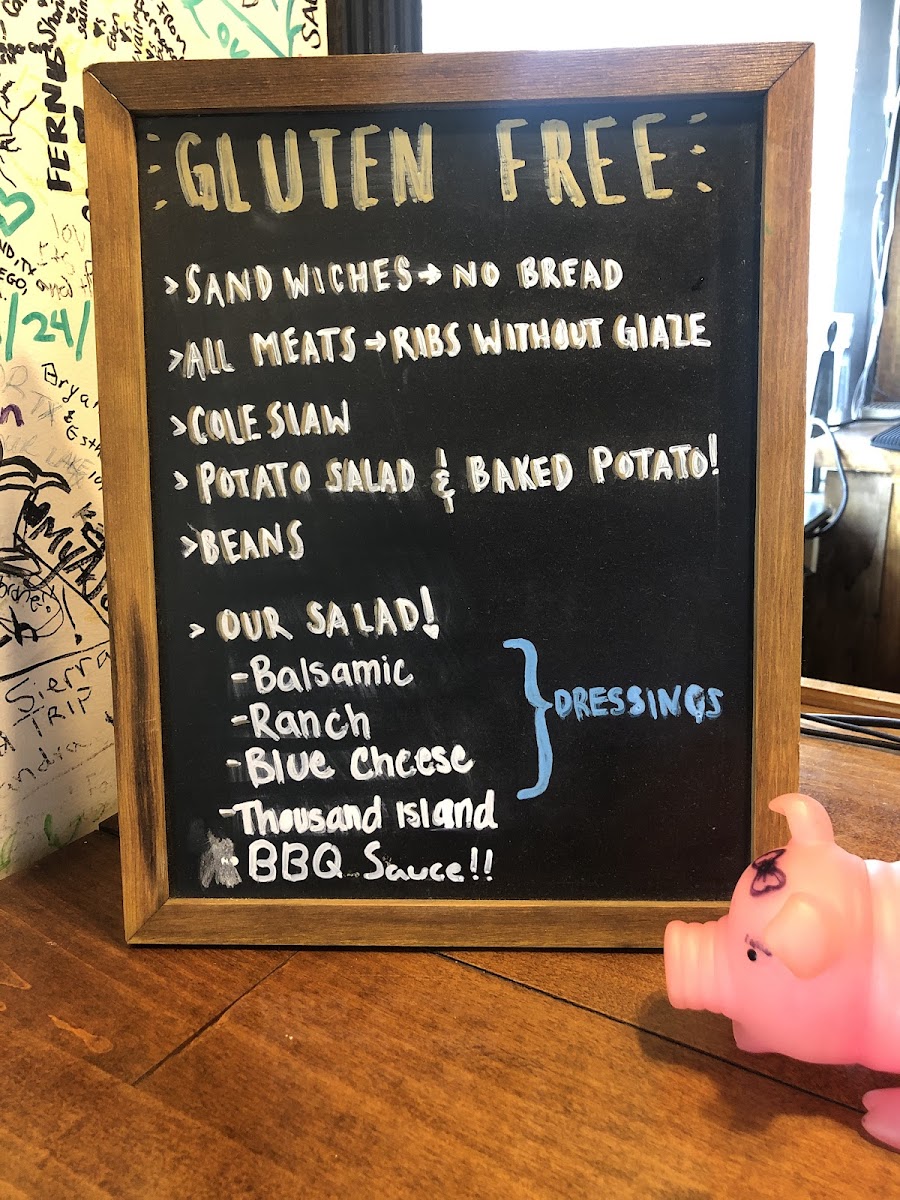 FERN
GLUTEN FREE
>SANDWICHES→NO BREAD
>ALL MEATS→RIBS WITHOUT GLAZE
>COLE SLAW
>POTATO SALAD & BAKED POTATO!
>BEANS
>OUR SALAD!
-Balsamic
-Ranch
-Blue Cheese
DRESSINGS
-Thousand Island
BBQ Sauce!!
24/
Sierra
TRIP